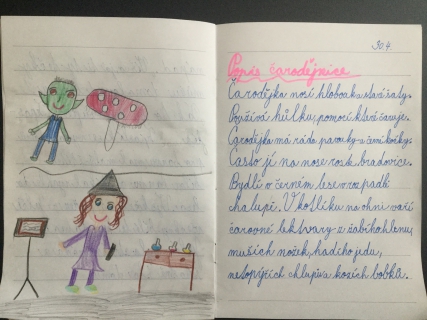 30.4.
Popis čarodějnice
Čarodějka nosí klobouk a staré šaty.
Používá hůlku, pomocí které čaruje.
Čarodějka má ráda pavouky a černé kočky.
Často jí na nose roste bradavice.
Bydlí v černém lese v rozpadlé
chalupě. V kotlíku na ohni vaří
čarovné lektvary z žabího hlenu,
muších nožek, hadího jedu,
netopýřích chlupů a kozích bobků.